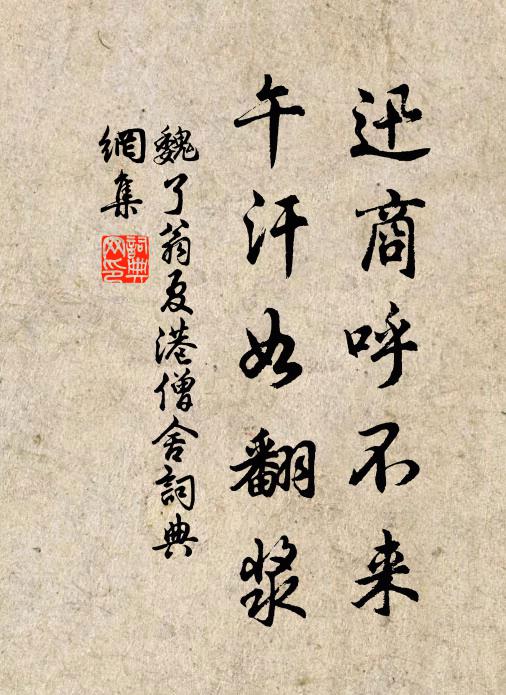 迅商呼不来
午汗如翻浆
魏了翁夏港僧舍詞典
網集
詞典网印